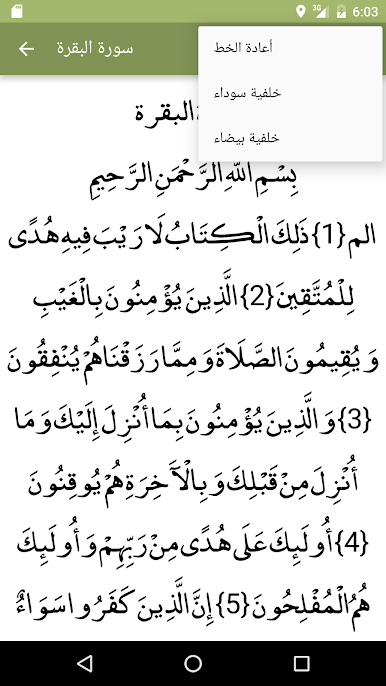 3G 6:03
سورة البقرة
أعادة الخط
خلفية سوداء
خلفية بيضاء
البقرة
بِسْمِ اللَّهِ الرَّحْمَنِ الرَّحِيمِ
الم {1} ذَلِكَ الْكِتَابُ لَا رَيْبَ فِيهِ هُدًى
لِلْمُتَّقِينَ {2} الَّذِينَ يُؤْمِنُونَ بِالْغَيْبِ
وَيُقِيمُونَ الصَّلَاةَ وَمِمَّا رَزَقْنَاهُمْ يُنْفِقُونَ
{3} وَالَّذِينَ يُؤْمِنُونَ بِمَا أُنْزِلَ إِلَيْكَ وَمَا
أُنْزِلَ مِنْ قَبْلِكَ وَبِالْآَخِرَةِ هُمْ يُوقِنُونَ
{4} أُولَئِكَ عَلَى هُدًى مِنْ رَبِّهِمْ وَأُولَئِكَ
هُمُ الْمُفْلِحُونَ {5} إِنَّ الَّذِينَ كَفَرُوا سَوَاءٌ